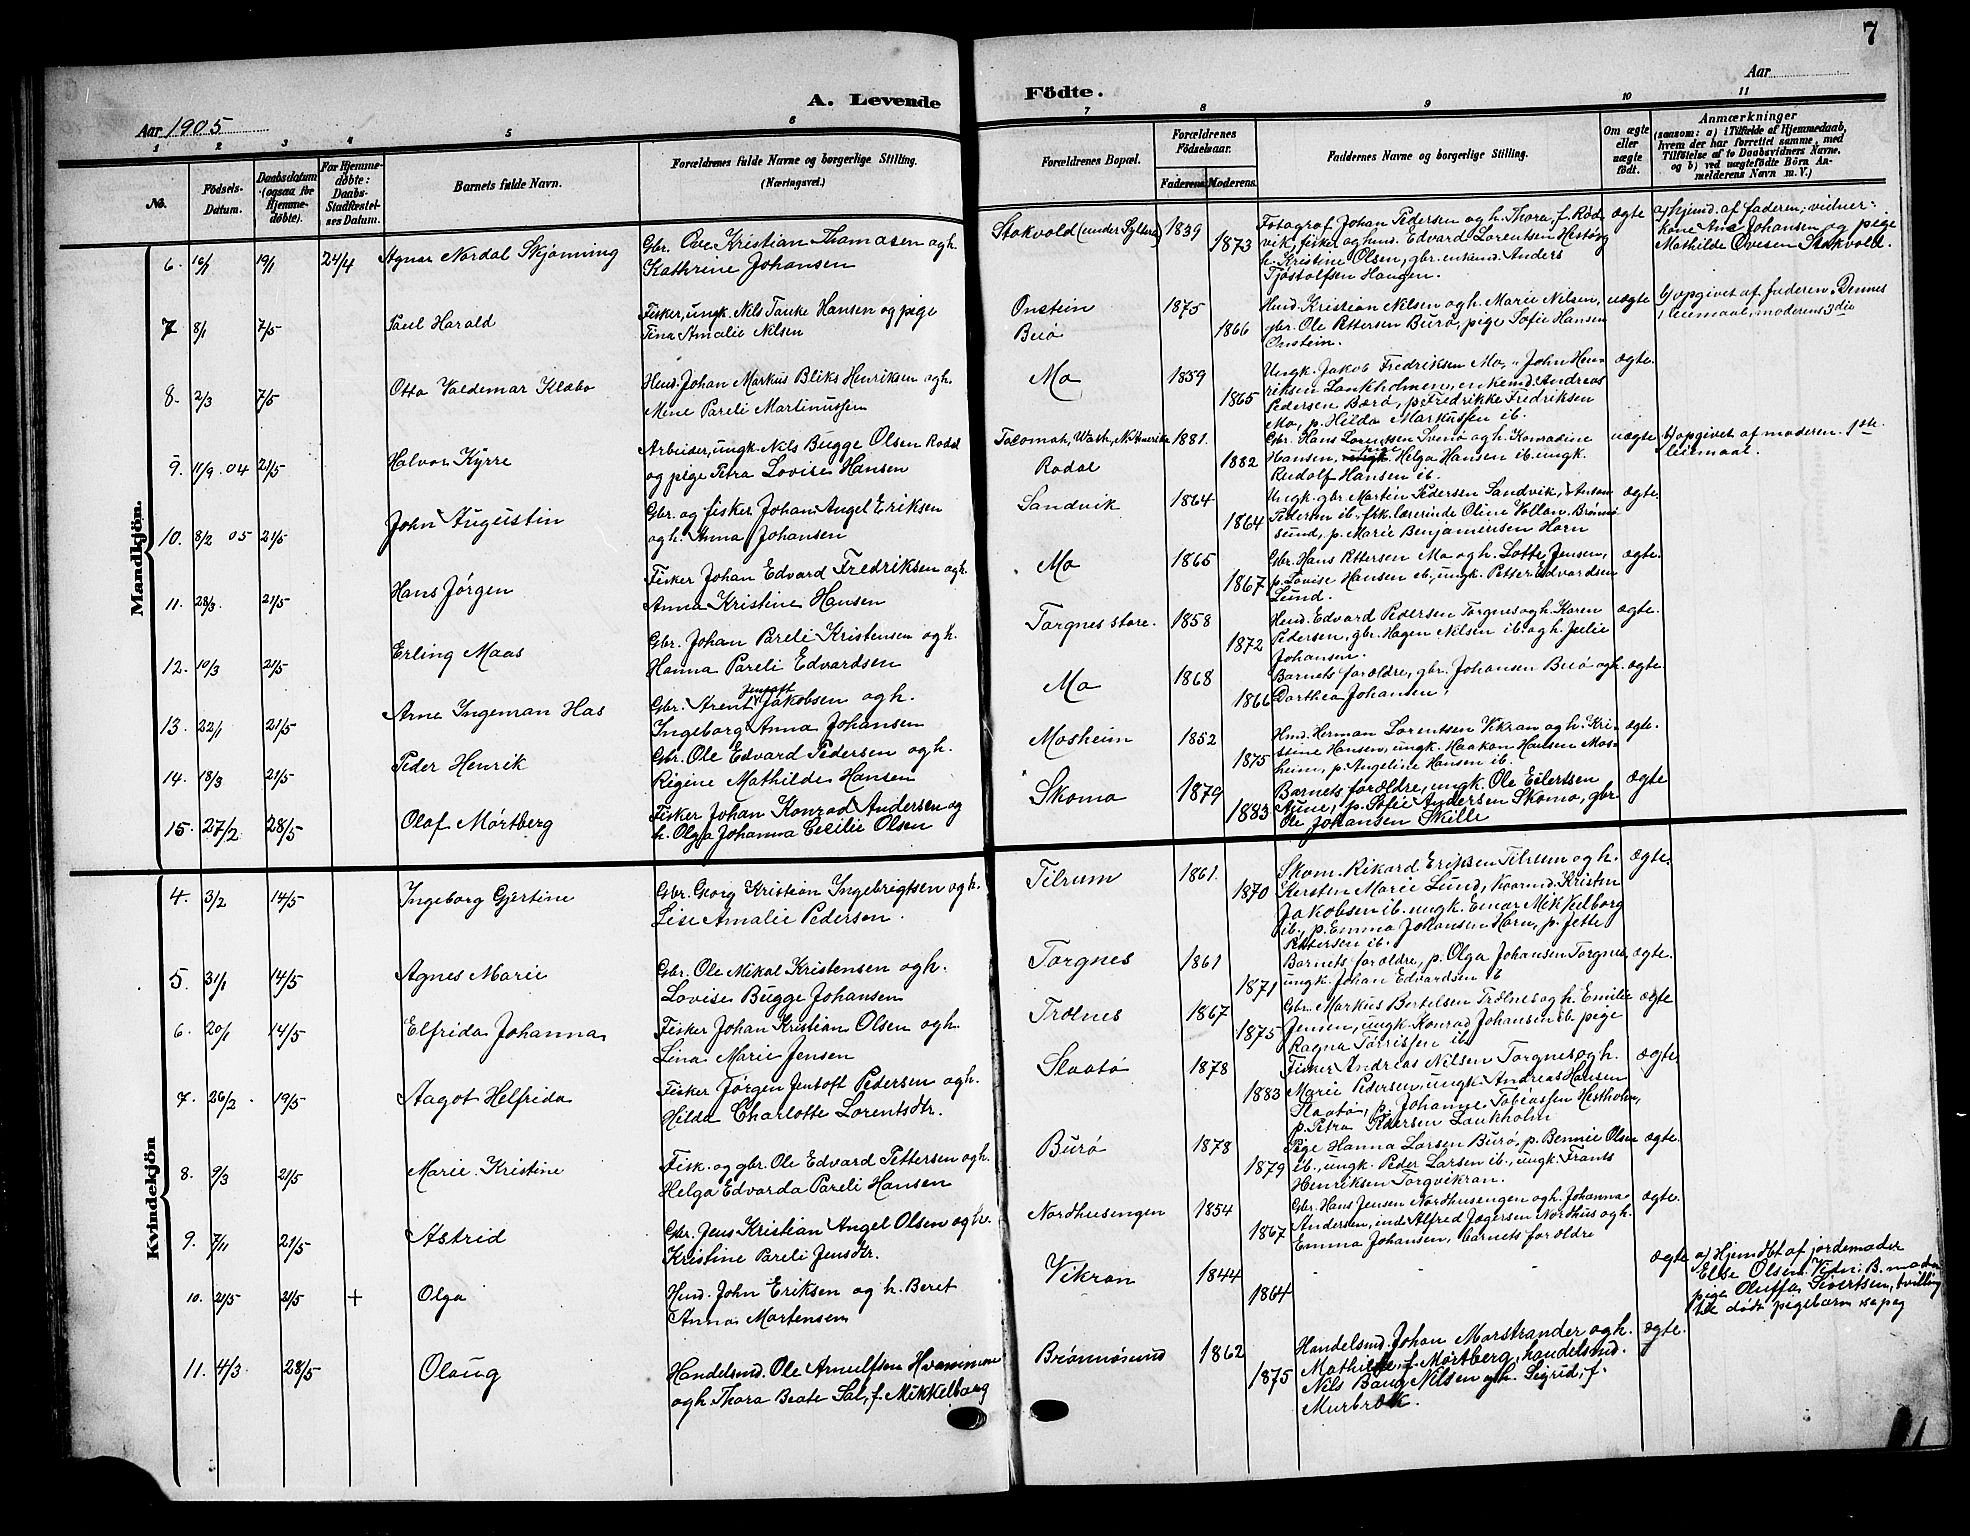 7
Aar
A. Levende Födte.
Aar 1905
1 2 3 4 5 6 7 8 9 10 11
No.
Födsels-Datum.
Daabsdatum (ogsaa for Hjemmedøbte).
For Hjemmedøbte: Daabs-Stadfæstelses Datum.
Barnets fulde Navn.
Forældrenes fulde Navne og borgerlige Stilling. (Næringsvei.)
Forældrenes Bopæl.
Forældrenes Födselsaar.
Faderens. Moderens.
Faddernes Navne og borgerlige Stilling.
Om ægte eller uægte født.
Anmærkninger
(saasom: a) i Tilfælde af Hjemmedaab, hvem der har forrettet samme, med Tilføielse af to Daabsvidners Navne, og b) ved uægtefødte Börn Anmelderens Navn m. V.)
Mandkjön.
6. 16/1 19/1 24/4 Agnar Nordal Skjønning
Gbr. Ove Kristian Thomasen og h.
Kathrine Johansen
Stokvold (under Sylten) 1839 1873
Fotograf Johan Pedersen og h. Thora, f. Rødvik, fisker og husd. Edvard Lorentsen Hestøy
h. Kristine Olsen, gbr. enkemd. Anders
Tjøstolfsen Haugen.
ægte
a) hjemd. af faderen; vidner:
kone Ana Johansen og pige
Mathilde Ovesen Stokvold.
7 8/1 7/5 Paul Harald
Fisker, ungk. Nils Tanke Hansen og pige
Tina Amalie Nilsen
Onstein
Burø
1875 1866
Husd. Kristian Nilsen og h. Marie Nilsen,
gbr. Ole Pettersen Burø, pige Sofie Hansen
Onstein.
uægte
b) opgivet af faderen. Dennes
1 leiemaal, moderens 3die
8. 2/3 7/5 Otto Valdemar Klæbo
Husd. Johan Markus Bliks Henriksen og h.
Mene Pareli Martinussen
Mo 1859 1865
Ungk. Jakob Fredriksen Mo, " John Henriksen Lankholmen, enkemd. Andreas
Pedersen Bærø, p. Fredrikke Fredriksen
Mo, p. Hilda Markussen ib.
ægte.
9. 11/9 04 21/5 Halvor Kyrre
Arbeider, ungk. Nils Bugge Olsen Rodal
og pige Petra Lovise Hansen
Tacomah, Wash, N. Amerika
Rodal
1881. 1882
Gbr. Hans Lorentsen Svenø og h. Konradine
Hansen, pige Helga Hansen ib. ungk.
Rudolf Hansen ib.
uægte
b) opgivet af moderen. 1ste
leiemaal.
10. 8/2 05 21/5 John Augustin
Gbr. og fisker Johan Angel Eriksen
og h. Anna Johansen
Sandvik 1864 1864
Ungk. gbr. Martin Pedersen Sandvik, Anton
Pedersen ib. frk. lærerinde Oline Vollan, Brønnøsund, p. Marie Benjaminsen Horn
ægte.
11. 28/3 21/5 Hans Jørgen
Fisker Johan Edvard Fredriksen og h.
Anna Kristine Hansen
Mo 1865 1867
Gbr. Hans Pettersen Mo og h. Lotte Jensen,
p. Lovise Hansen ib., ungk. Petter Edvardsen
Lund.
ægte.
12. 10/3 21/5 Erling Maas
Gbr. Johan Pareli Kristensen og h.
Hanna Pareli Edvardsen
Torgnes store. 1858 1872
Husd. Edvard Pedersen Torgnes og h. Karen
Pedersen, gbr. Hagen Nilsen ib. og h. Julie
Johansen.
ægte.
13. 22/1 21/5 Arne Ingeman Has
Gbr. Arent Jentoft Jakobsen og h.
Ingeborg Anna Johansen
Mo 1868 1866
Barnets forældre, gbr. Johansen Burø og h.
Dorthea Johansen.
ægte.
14. 18/3 21/5 Peder Henrik
Gbr. Ole Edvard Pedersen og h.
Rigine Mathilde Hansen
Mosheim 1852 1875
Husd. Herman Lorentsen Vikran og h. Kristine Hansen, ungk. Haakon Hansen Mosheim, p. Angeline Hansen ib.
ægte.
15. 27/2 28/5 Olaf Mørtberg
Fisker Johan Konrad Andersen og
h. Olga Johanna Cecilie Olsen
Skomo 1879 1883
Barnets forældre, ungk. Ole Eilertsen
Aune, p. Sofie Andersen Skomo, gbr.
Ole Johansen Skille
ægte
Kvindekjön
4. 3/2 14/5 Ingeborg Gjertine
Gbr. Georg Kristian Ingebrigtsen og h.
Lise Amalie Pedersen.
Tilrum 1861. 1870
Skom. Rikard Eriksen Tilrum og h.
Kersten Marie Lund, Kaarmd. Kristen
Jakobsen ib. ungk. Einar Mikkelborg
ib., p. Emma Johansen Horn, p. Jette
Pettersen ib.
ægte.
5. 31/1 14/5 Agnes Marie
Gbr. Ole Mikal Kristensen og h.
Lovise Bugge Johansen
Torgnes 1861 1871
Barnets forældre, p. Olga Johansen Torgnes
ungk. Johan Edvardsen ib
ægte.
6. 20/1 14/5 Elfrida Johanna
Fisker Johan Kristian Olsen og h.
Lina Marie Jensen
Trælnes 1867 1875
Gbr. Markus Bertelsen Trælnes og h. Emilie
Jensen, ungk. Konrad Johansen ib. pige
Ragna Tørrissen ib.
ægte
7. 26/2. 19/5 Aagot Helfrida
Fisker Jørgen Jentoft Pedersen og h.
Hilda Charlotte Lorentsdtr.
Slaatø 1878 1883
Fisker Andreas Nilsen Torgnes og h.
Marie Pedersen, ungk. Andreas Hansen
Slaatø, p. Johanne Tobiassen Hestholm,
p. Petra Pedersen Lankholm
ægte.
8. 9/3 21/5 Marie Kristine
Fisk. og gbr. Ole Edvard Pettersen og h.
Helga Edvarda Pareli Hansen
Burø 1878 1879
Pige Hanna Larsen Burø, p. Bennie Olsen
ib., ungk. Peder Larsen ib., ungk. Frants
Henriksen Torgvikran.
ægte.
9. 7/11 21/5 Astrid
Gbr. Jens Kristian Angel Olsen og h.
Kristine Pareli Jensdtr.
Nordhusengen 1854 1867
Gbr. Hans Jensen Nordhusengen og h. Johanna
Andersen, ind. Alfred Jægersen Nordhus og h.
Emma Johansen, barnets forældre
ægte.
10. 21/5 21/5 + Olga
Husd. John Eriksen og h. Beret
Anna Mortensen
Vikran 1844 1864
ægte
a) Hjemdbt af jordemoder
Else Olsen. Vidn: B. moder
pige Oluffa Sivertsen, tvilling
til dødt pigebarn
11. 4/3 28/5 Olaug
Handelsmd. Ole Arnulfsen Hvamme
og h. Thora Beate Sal, f. Mikkelborg
Brønnøsund 1862 1875
Handelsmd. Johan Marstrander og h.
Mathilde, f. Mørtberg, handelsmd.
Nils Baug Nilsen og h. Sigrid, f.
Murbræk.
ægte.